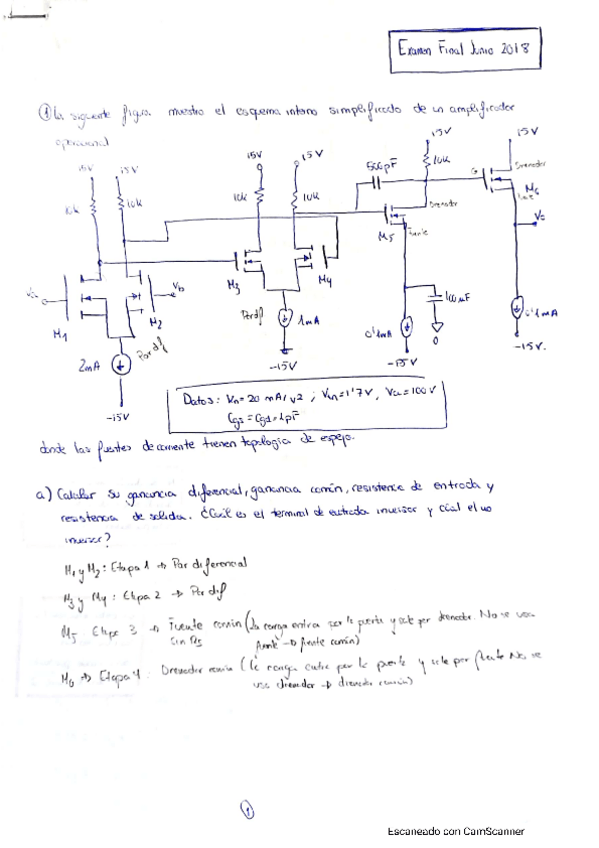 Examen Final Junio 2018
① La siguiente figura muestra el esquema interno simplificado de un amplificador
operacional
15V
15V
15V
15V
15V
15V
10k
10k
10k
10k
500pF
10k
G
Drenador
M6
Drenador
M5
Fuente
Vb
M1
M2
M3
M4
Par dif
2mA
Par dif
1mA
0'1mA
100μF
0
0'1mA
-15V
-15V
-15V
-15V.
Datos: Kn=20 mA/V2 ; Vtn=1'7V, VA=100V
Cgs=Cgd=1pF
donde las fuentes de corriente tienen topología de espejo.
a) Calcular su ganancia diferencial, ganancia común, resistencia de entrada y
resistencia de salida. ¿Cuál es el terminal de entrada inversor y cúal el no
inversor?
M1 y M2: Etapa 1 → Par diferencial
M3 y M4: Etapa 2 → Par dif
M5 Etapa 3 → Fuente común (la carga entra por la puerta y sale por drenador. No se usa
sin Rs fuente → fuente común)
M6 → Etapa 4: Drenador común (la carga entra por la puerta y sale por fuente No se
usa drenador → drenador común)
1
Escaneado con CamScanner